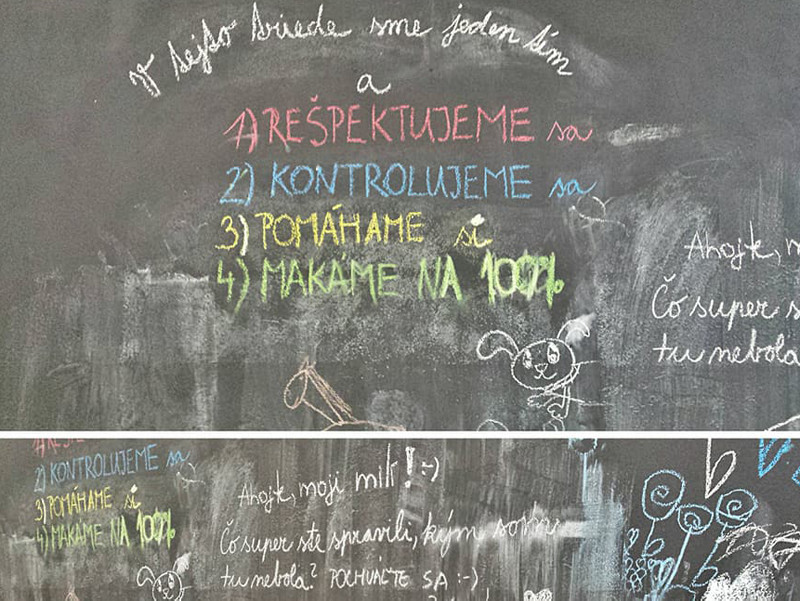 V tejto triede sme jeden tím
a
1) REŠPEKTUJEME sa
2) KONTROLUJEME sa
3) POMÁHAME si
4) MAKÁME NA 100%
Ahojte, m
Čo super s
tu nebola
2) KONTROLUJEME sa
3) POMÁHAME si
4) MAKÁME NA 100%
Ahojte, moji milí! :-)
Čo super ste spravili, kým som
tu nebola? POCHVÁĽTE SA :-)